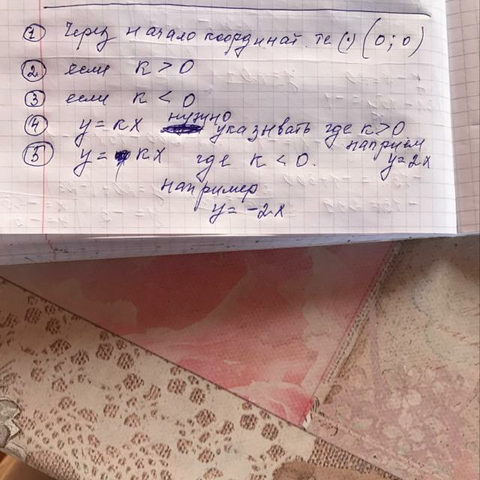 ① Через начало координат. те (·) (0; 0)
② если к > 0
③ если к < 0
④ y = кх нужно указывать где к > 0
наприм
⑤ y = кх где к < 0. y = 2x
например
y = -2x